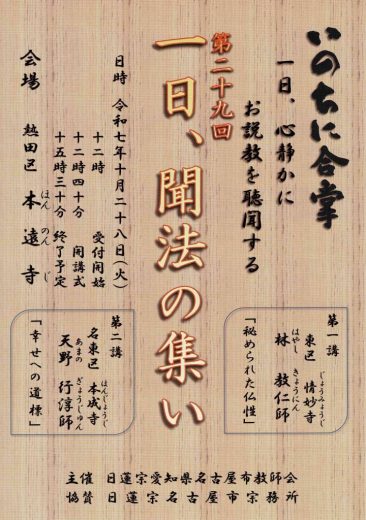 いのちに合掌
一日、心静かに
お説教を聴聞する
第二十九回
一日、聞法の集い
日時 令和七年十月二十八日(火)
十二時 受付開始
十二時四十分 開講式
十五時三十分 終了予定
会場 熱田区 本遠寺
ほんのんじ
第一講
東区 情妙寺
じょうみょうじ
林 教仁師
はやし きょうにん
「秘められた仏性」
第二講
名東区 本成寺
ほんじょうじ
天野 行淳師
あまの ぎょうじゅん
「幸せへの道標」
主催 日蓮宗愛知県名古屋布教師会
協賛 日蓮宗名古屋市宗務所